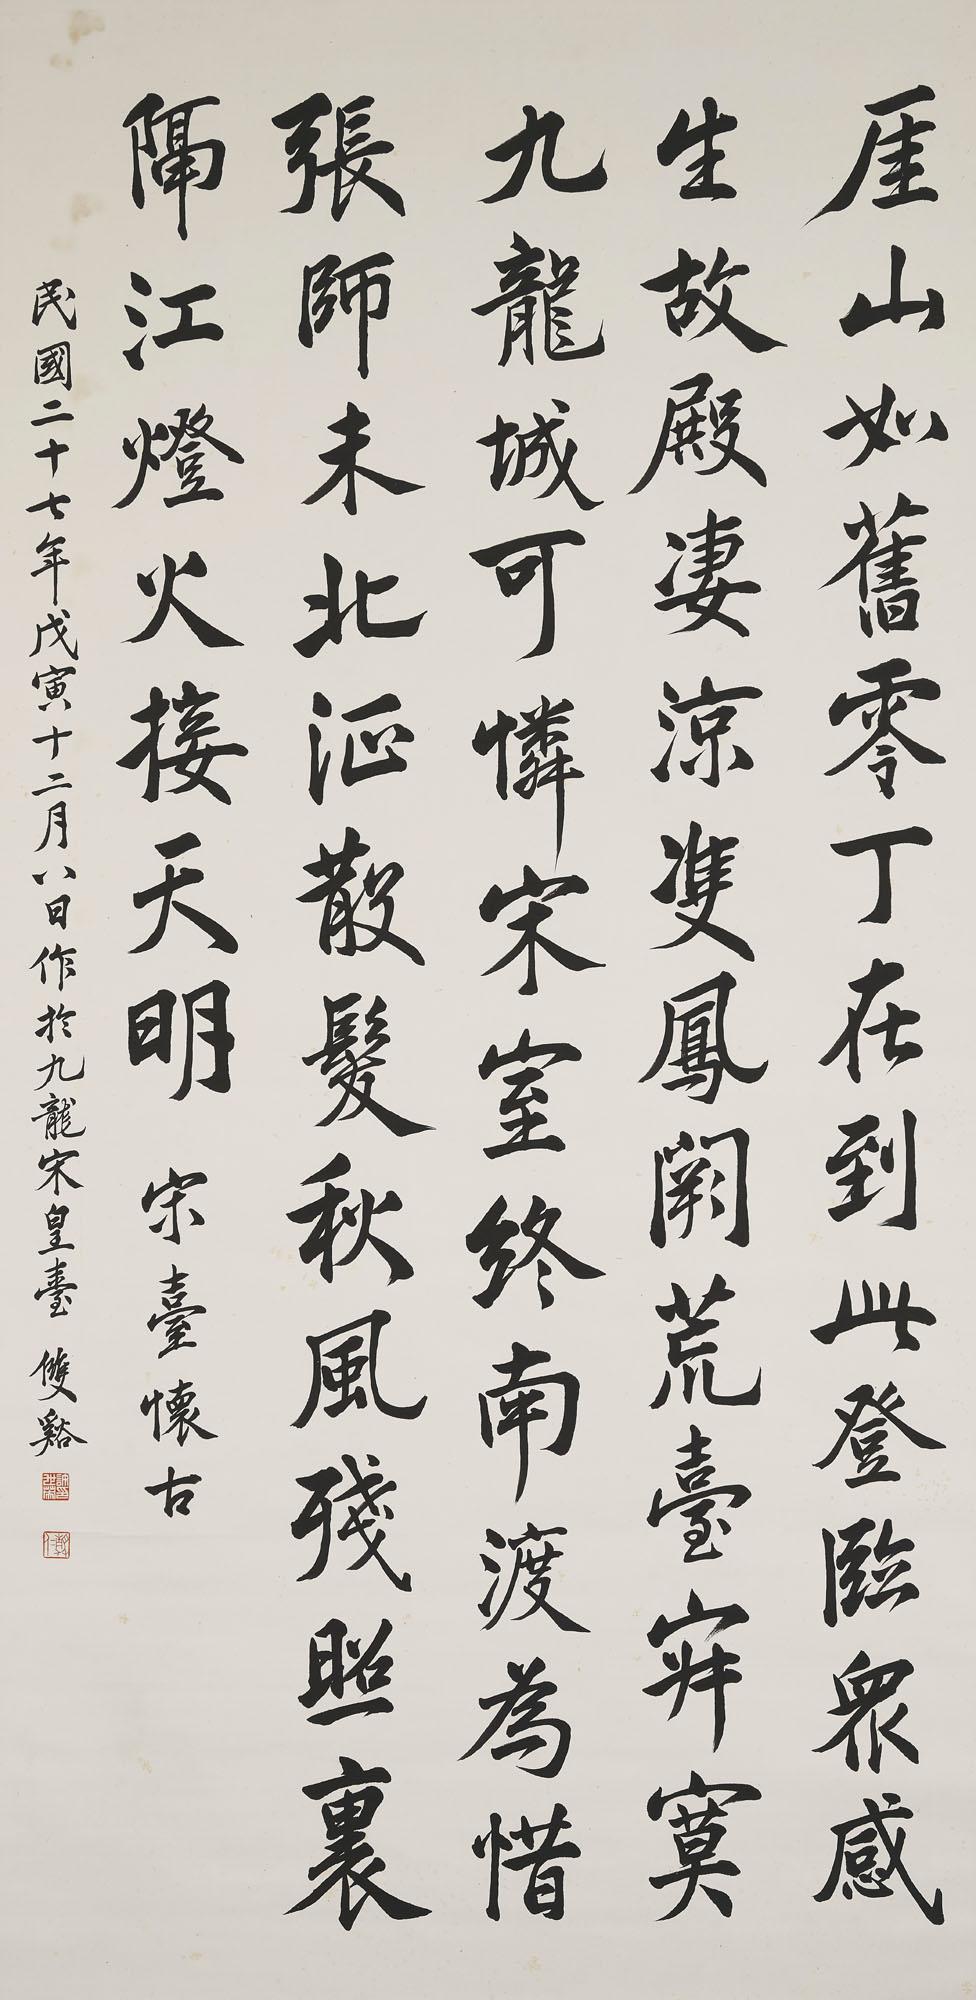 厓山如舊零丁在到此登臨衆感
生故殿淒涼雙鳳闕荒臺寂寞
九龍城可憐宋室終南渡為惜
張師未北征散髮秋風殘照裏
隔江燈火接天明　宋臺懷古
民國二十七年戊寅十二月八日作於九龍宋皇臺　雙谿